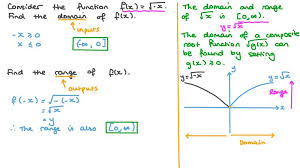 Consider the function f(x)=√-x.
Find the domain of f(x).
inputs
-x ≥ 0
x ≤ 0
(-∞, 0]
Find the range of f(x).
outputs
f(-x) = √-(-x)
= √x
= y
∴ The range is also [0,∞)
The domain and range
of √x is [0,∞).
y=√x
The domain of a composite
root function √g(x) can
be found by setting
g(x) ≥ 0.
y=√-x
y
y=√x
Range
x
Domain